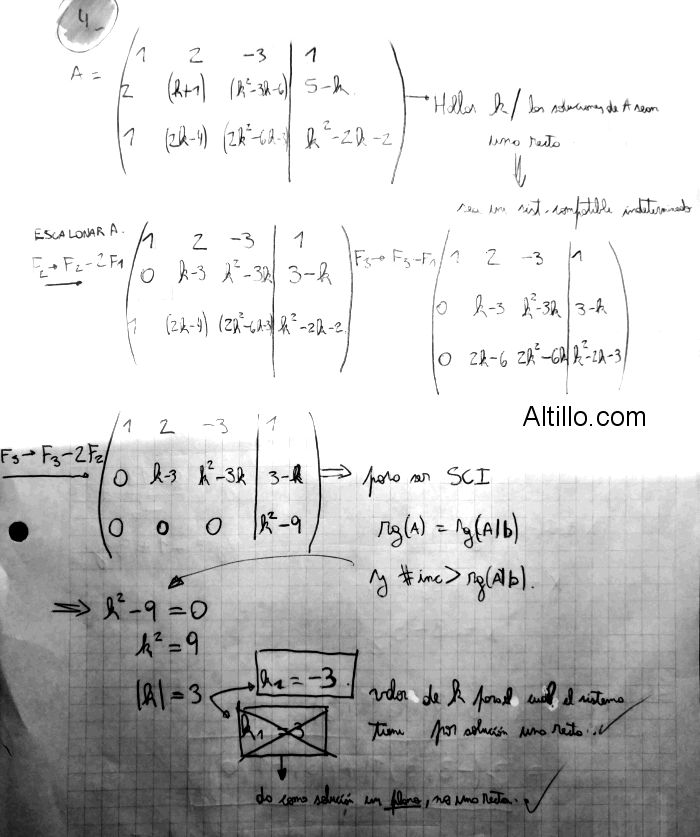 4_
A = ( 1 2 -3 | 1
2 (k+1) (k²-3k-6) | 5-k
1 (2k-4) (2k²-6k-3) | k²-2k-2 ) → Hallar k / las soluciones de A sean
una recta
⇓
sea un sist. compatible indeterminado
ESCALONAR A.
F2→F2-2F1
( 1 2 -3 | 1
0 k-3 k²-3k | 3-k
1 (2k-4) (2k²-6k-3) | k²-2k-2 )
F3→F3-F1
( 1 2 -3 | 1
0 k-3 k²-3k | 3-k
0 2k-6 2k²-6k | k²-2k-3 )
Altillo.com
F3→F3-2F2
( 1 2 -3 | 1
0 k-3 k²-3k | 3-k
0 0 0 | k²-9 ) ⇒ para ser SCI
rg(A) = rg(A|b)
y #inc > rg(A|b).
⇒ k²-9 = 0
k² = 9
|k| = 3
k2 = -3. valor de k para el cual el sistema
tiene por solución una recta.. ✓
k1 = 3
da como solución un plano, no una recta. ✓